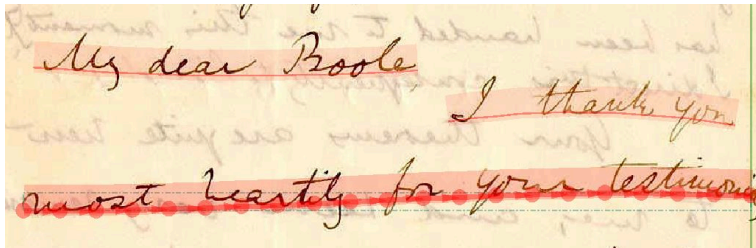 My dear Boole
I thank you
most heartily for your testimoni